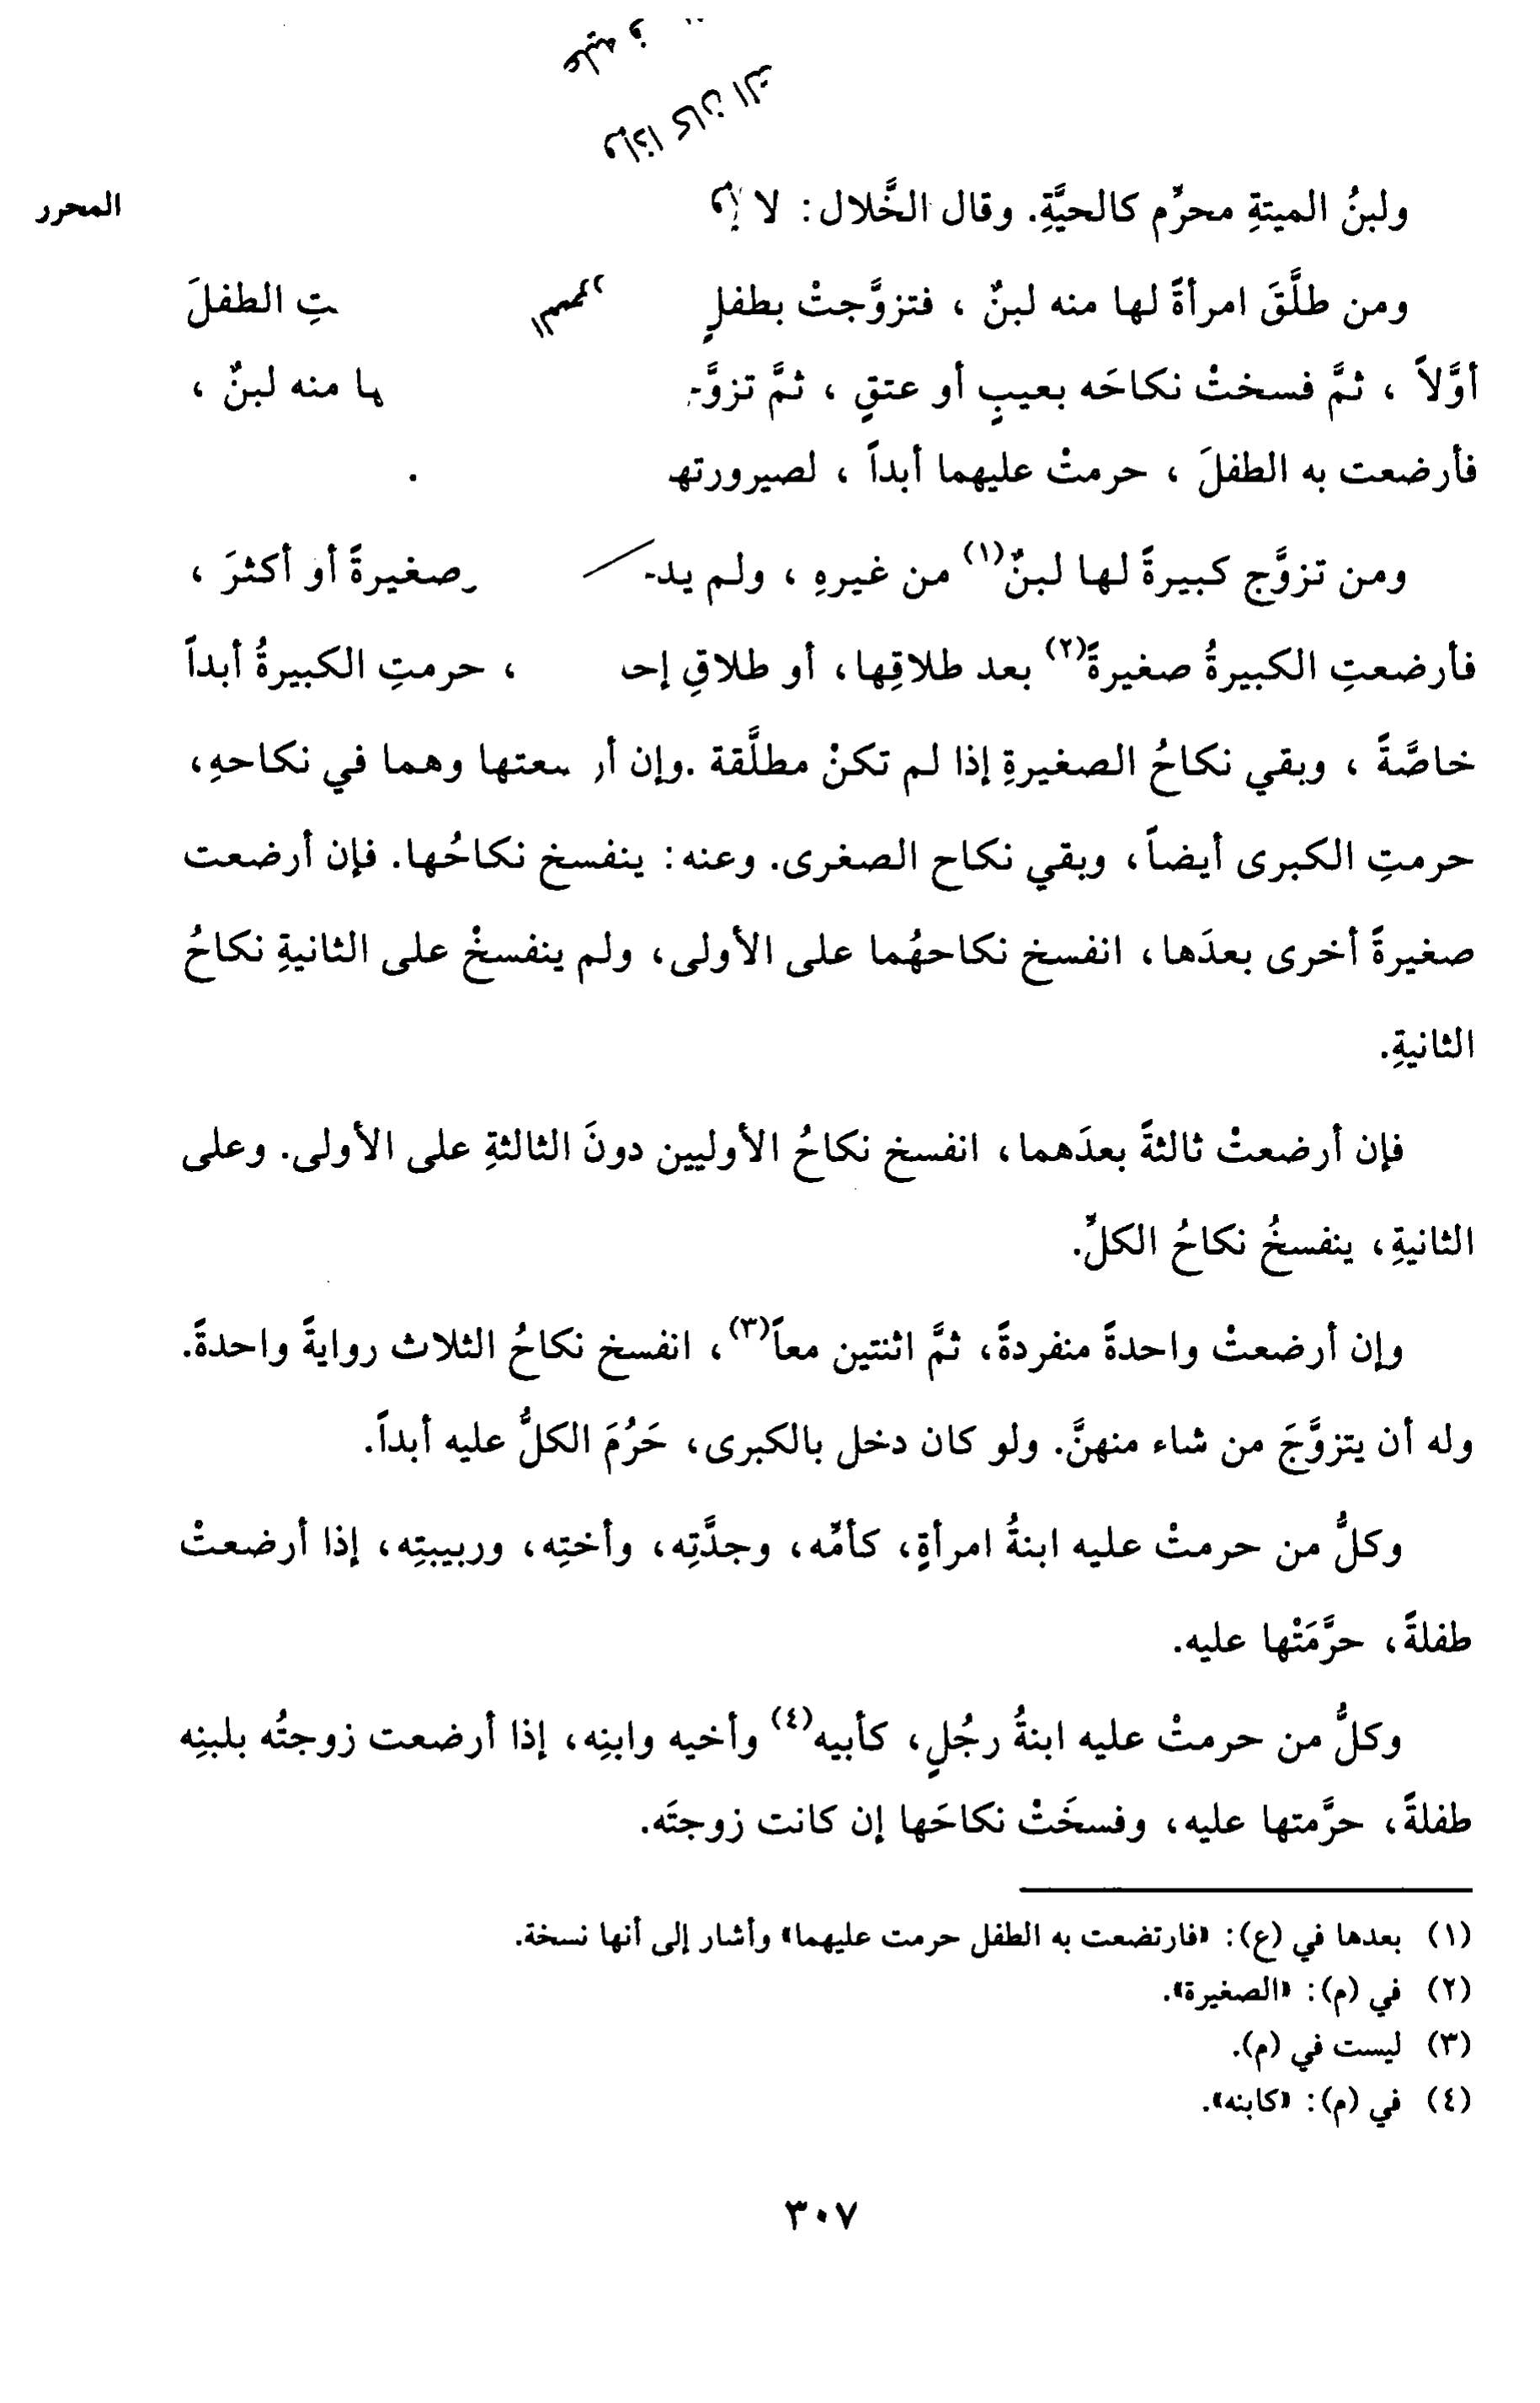 عليه و
وإذا كان
المحرر
ولبنُ الميتةِ محرِّم كالحيَّةِ. وقال الخَّلال: لا
ومن طلَّقَ امرأةً لها منه لبنٌ ، فتزوَّجتْ بطفلٍ الطفلَ
أوَّلاً ، ثمَّ فسختْ نكاحَه بعيبٍ أو عتقٍ ، ثمَّ منه لبنٌ ،
فأرضعت به الطفلَ ، حرمتْ عليهما أبداً ،
ومن تزوَّج كبيرةً لها لبنٌ(١) من غيرهِ ، ولم صغيرةً أو أكثرَ ،
فأرضعتِ الكبيرةُ صغيرةً(٢) بعد طلاقِها، أو طلاقِ ، حرمتِ الكبيرةُ أبداً
خاصَّةً ، وبقي نكاحُ الصغيرةِ إذا لم تكنْ مطلَّقة .وإن وهما في نكاحهِ،
حرمتِ الكبرى أيضاً، وبقي نكاح الصغرى. وعنه: ينفسخ نكاحُها. فإن أرضعت
صغيرةً أخرى بعدَها، انفسخ نكاحهُما على الأولى، ولم ينفسخْ على الثانيةِ نكاحُ
الثانيةِ.
فإن أرضعتْ ثالثةً بعدَهما، انفسخ نكاحُ الأوليين دونَ الثالثةِ على الأولى. وعلى
الثانيةِ، ينفسخُ نكاحُ الكلِّ.
وإن أرضعتْ واحدةً منفردةً، ثمَّ اثنتين معاً(٣)، انفسخ نكاحُ الثلاث روايةً واحدةً.
وله أن يتزوَّجَ من شاء منهنَّ. ولو كان دخل بالكبرى، حَرُمَ الكلُّ عليه أبداً.
وكلُّ من حرمتْ عليه ابنةُ امرأةٍ، كأمِّه، وجدَّتِه، وأختِه، وربيبتِه، إذا أرضعتْ
طفلةً، حرَّمَتْها عليه.
وكلُّ من حرمتْ عليه ابنةُ رجُلٍ، كأبيه(٤) وأخيه وابنِه، إذا أرضعت زوجتُه بلبنِه
طفلةً، حرَّمتها عليه، وفسخَتْ نكاحَها إن كانت زوجتَه.
(١) بعدها في (ع): «فارتضعت به الطفل حرمت عليهما» وأشار إلى أنها نسخة.
(٢) في (م): «الصغيرة».
(٣) ليست في (م).
(٤) في (م): «كابنه».
٣٠٧